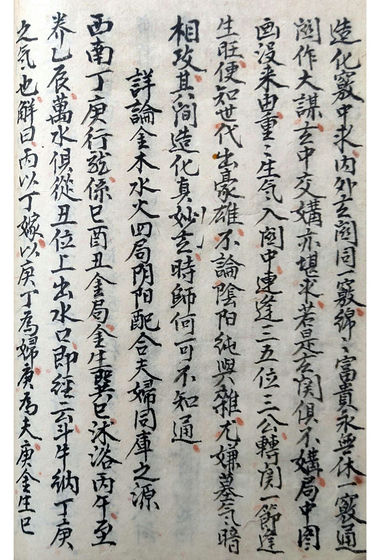 造化竅中求内外玄関同一竅綿々富貴永無休一竅通
関作大謀玄中交媾亦堪求若是玄関俱不媾局中图
画没来由重々生气入関中連逢三五位三公轉関一節逢
生旺便知世代出豪雄不論陰陽純與雜尤嫌墓气暗
相攻其间造化真妙玄時師何可不知通
詳論金木水火四局阴阳配合夫婦同庫之源
西南丁庚行龍係巳酉丑金局金生巽巳沐浴丙午至
养乙辰萬水俱從丑位上出水口即經云斗牛納丁庚
之气也觧曰丙以丁嫁以庚丁爲婦庚爲夫庚金生巳